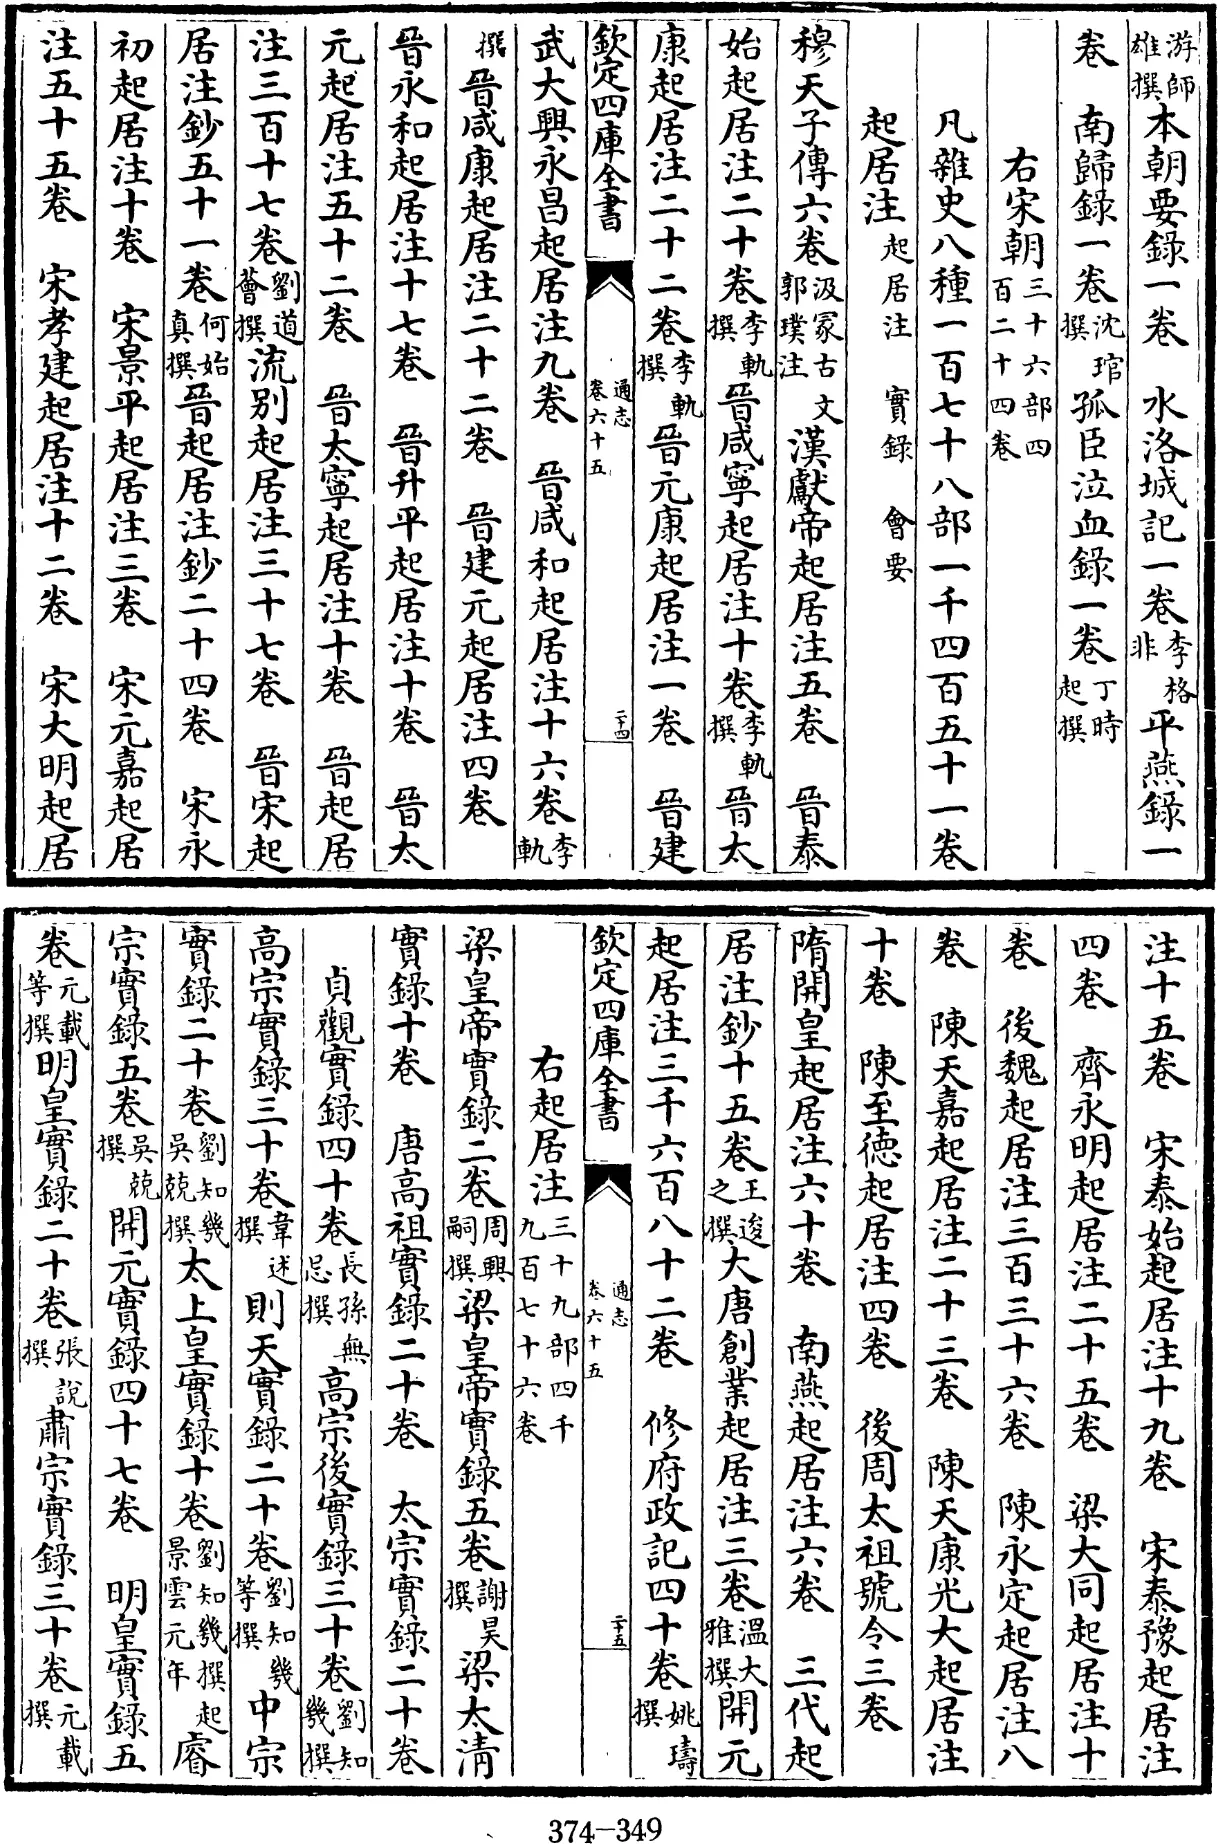 游師雄撰本朝要錄一卷　水洛城記一卷李格非平燕錄一
卷　南歸錄一卷沈琯撰孤臣泣血錄一卷丁時起撰
右宋朝三十六部四百二十四卷
凡雜史八種一百七十八部一千四百五十一卷
起居注起居注　實錄　會要
穆天子傳六卷汲冢古文郭璞注漢獻帝起居注五卷　晉泰
始起居注二十卷李軌撰晉咸寧起居注十卷李軌撰晉太
康起居注二十二卷李軌撰晉元康起居注一卷　晉建
欽定四庫全書　通志卷六十五　二十四
武大興永昌起居注九卷　晉咸和起居注十六卷李軌
撰晉咸康起居注二十二卷　晉建元起居注四卷
晉永和起居注十七卷　晉升平起居注十卷　晉太
元起居注五十二卷　晉太寧起居注十卷　晉起居
注三百十七卷劉道薈撰流別起居注三十七卷　晉宋起
居注鈔五十一卷何始真撰晉起居注鈔二十四卷　宋永
初起居注十卷　宋景平起居注三卷　宋元嘉起居
注五十五卷　宋孝建起居注十二卷　宋大明起居
注十五卷　宋泰始起居注十九卷　宋泰豫起居注
四卷　齊永明起居注二十五卷　梁大同起居注十
卷　後魏起居注三百三十六卷　陳永定起居注八
卷　陳天嘉起居注二十三卷　陳天康光大起居注
十卷　陳至德起居注四卷　後周太祖號令三卷
隋開皇起居注六十卷　南燕起居注六卷　三代起
居注鈔十五卷王逡之撰大唐創業起居注三卷溫大雅撰開元
起居注三千六百八十二卷　修府政記四十卷姚璹撰
欽定四庫全書　通志卷六十五　二十五
右起居注三十九部四千九百七十六卷
梁皇帝實錄二卷周興嗣撰梁皇帝實錄五卷謝昊撰梁太清
實錄十卷　唐高祖實錄二十卷　太宗實錄二十卷
貞觀實錄四十卷長孫無忌撰高宗後實錄三十卷劉知幾撰
高宗實錄三十卷韋述撰則天實錄二十卷劉知幾等撰中宗
實錄二十卷劉知幾吳兢撰太上皇實錄十卷劉知幾撰起景雲元年睿
宗實錄五卷吳兢撰開元實錄四十七卷　明皇實錄五
卷元載等撰明皇實錄二十卷張說撰肅宗實錄三十卷元載撰
374-349